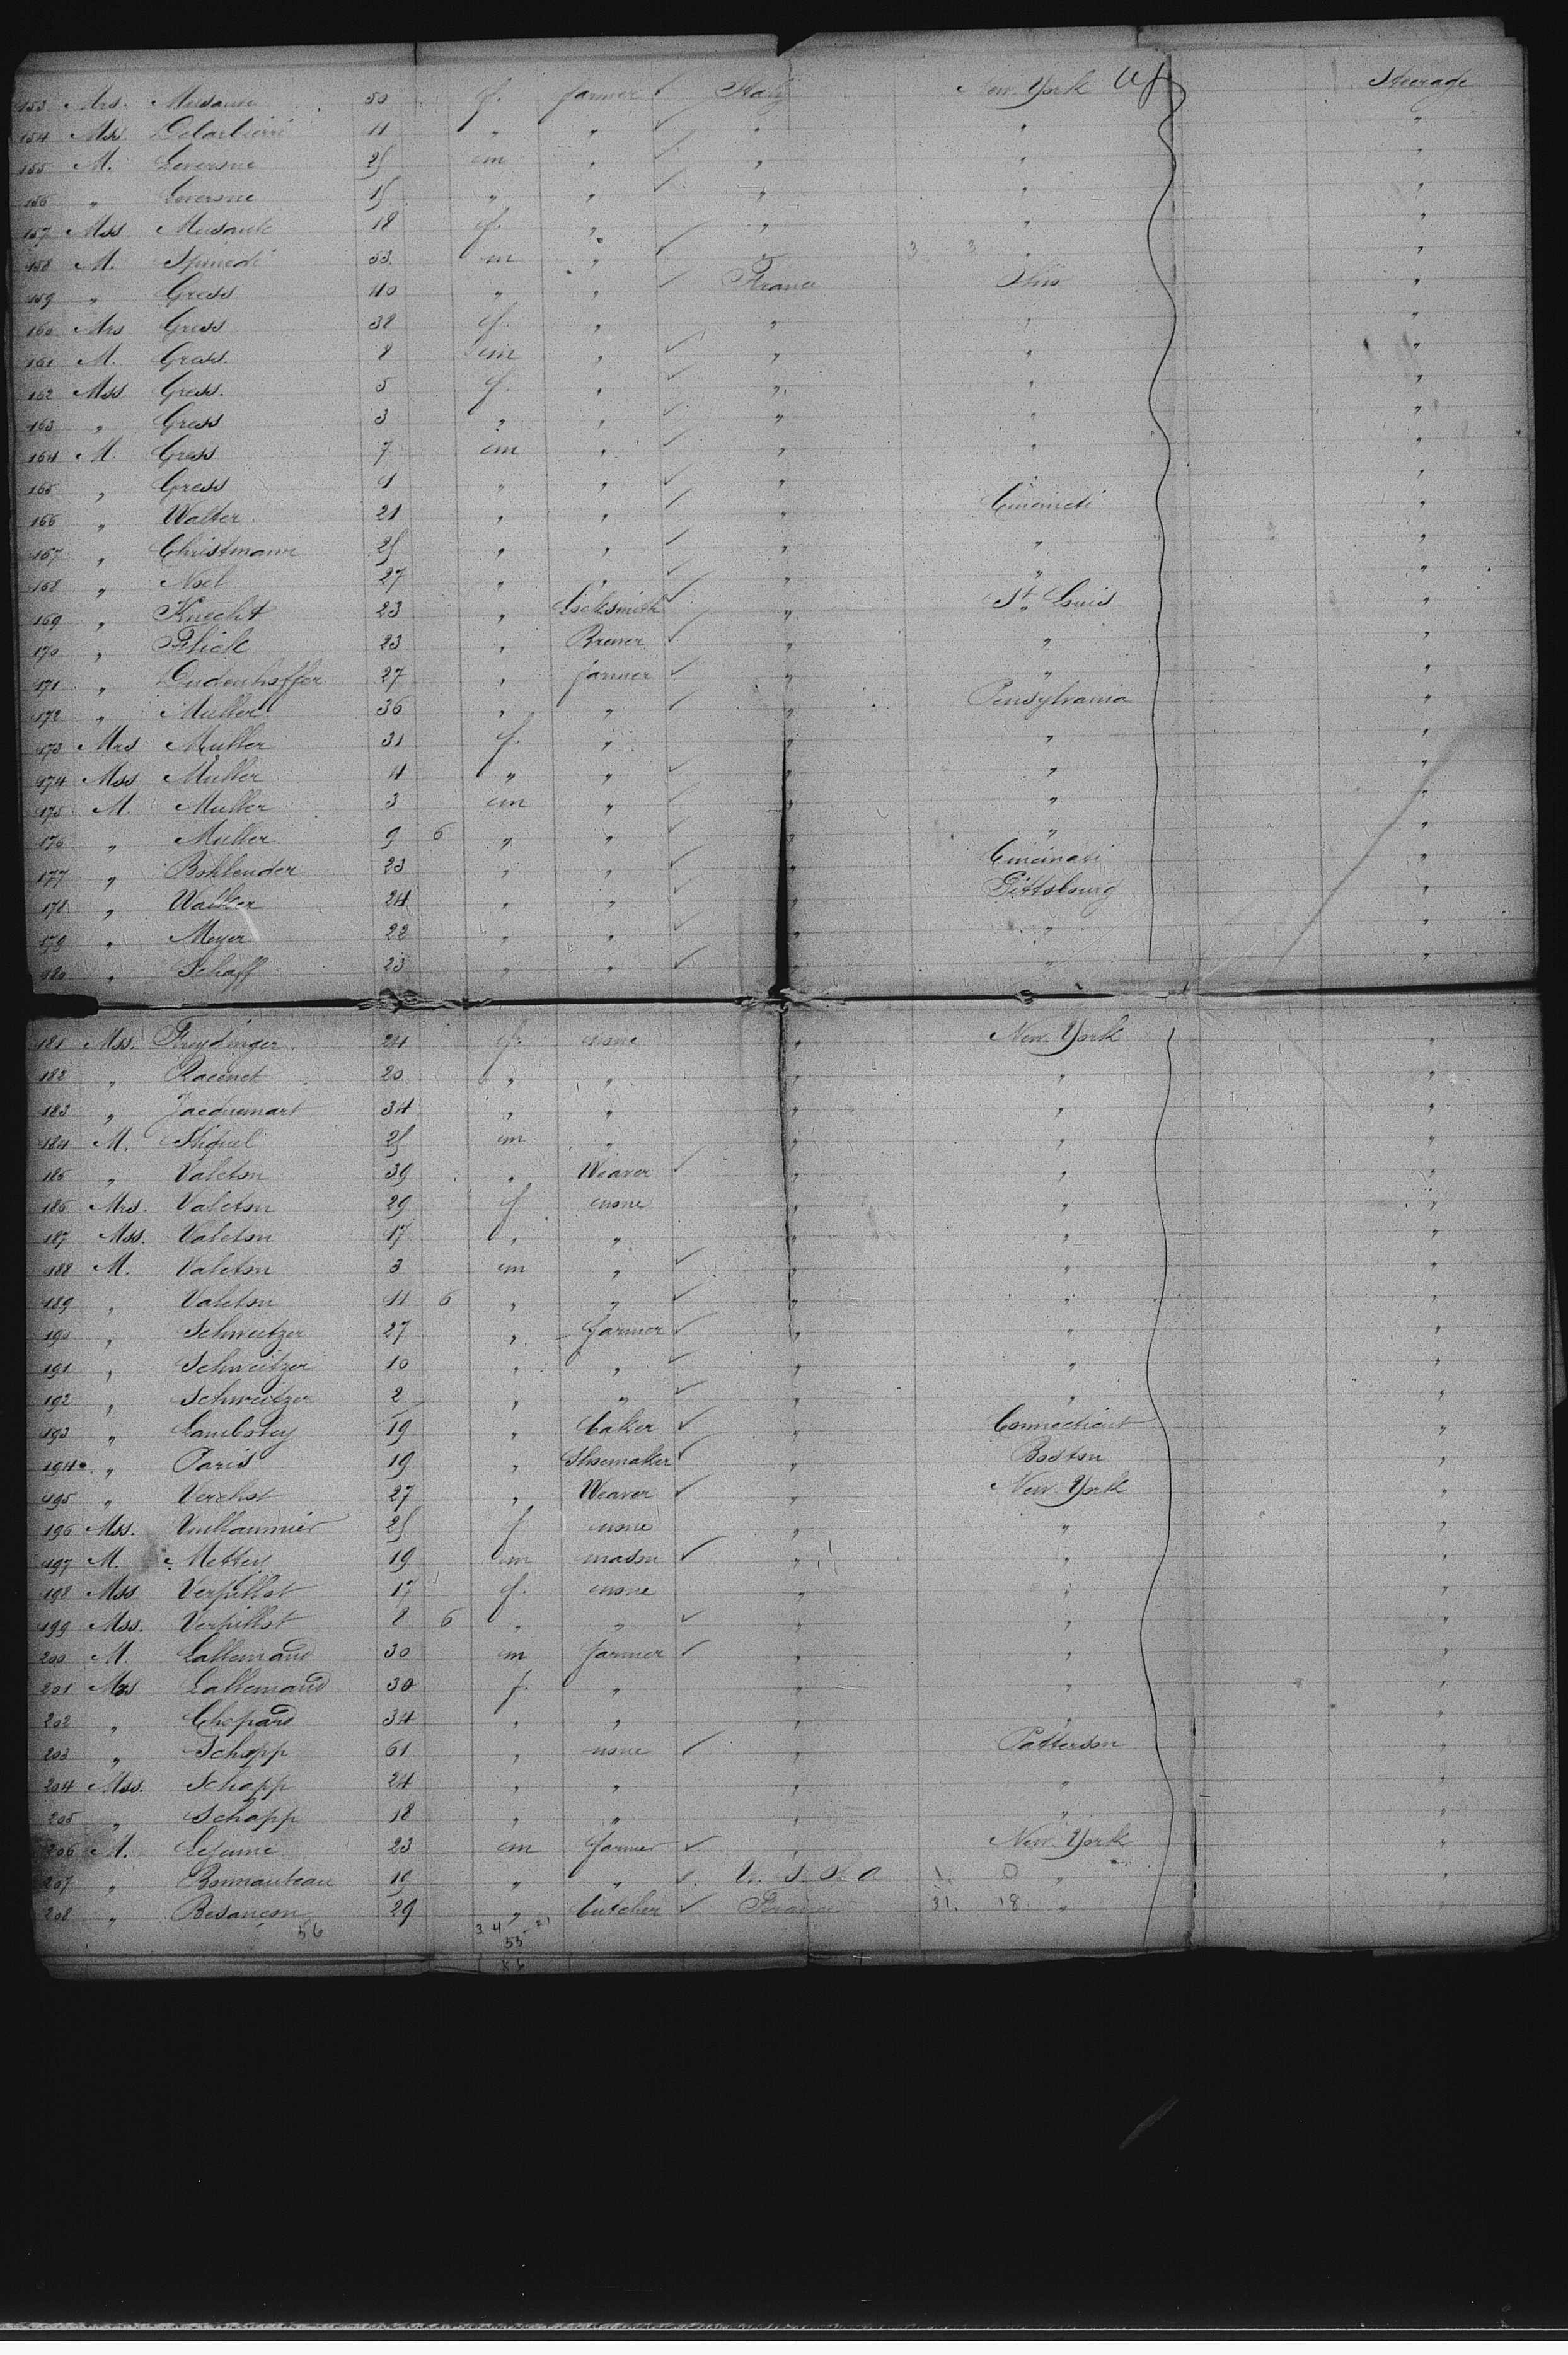 153 Mrs. Musante 50 f. farmer ✓ Italy New York Steerage
154 Mss. Delarbieri 11 " " ✓ " " "
155 M. Leversne 25 m " ✓ " " "
156 " Leversne 15 " " ✓ " " "
157 Mss Musante 18 f. " " " "
158 M. Spinedi 53 m " ✓ " 3 3 " "
159 " Gress 40 " " ✓ France Ohio "
160 Mrs Gress 38 f. " " " "
161 M. Gress. 8 m " ✓ " " "
162 Mss Gress. 5 f. " ✓ " " "
163 " Gress 3 " " ✓ " " "
164 M. Gress 7 m " ✓ " " "
165 " Gress 1 " " ✓ " " "
166 " Walter 21 " " ✓ " Cincineti "
167 " Christmann 25 " " ✓ " " "
168 " Noel 27 " " ✓ " " "
169 " Knecht 23 " Locksmith ✓ " St Louis "
170 " Flick 23 " Brewer ✓ " " "
171 " Dudenhoffer 27 " farmer ✓ " " "
172 " Muller 36 " " ✓ " Pensylvania "
173 Mrs Muller 31 f. " " " "
174 Mss Muller 4 " " ✓ " " "
175 M. Muller 3 m " ✓ " " "
176 " Muller 9 6 " " ✓ " " "
177 " Bohlender 23 " " ✓ " Cincinati "
178 " Walker 24 " " ✓ " Pittsbourg "
179 " Meyer 22 " " ✓ " " "
180 " Schaff 23 " " ✓ " " "
181 Mss. Freydinger 24 f. none " New York "
182 " Racenet 20 " " " " "
183 " Jacquemart 34 " " " " "
184 M. 25 m " " " "
185 " Valeton 39 " Weaver ✓ " " "
186 Mrs. Valeton 29 f none " " "
187 Mss. Valeton 17 " " " " "
188 M. Valeton 3 m " ✓ " " "
189 " Valeton 11 6 " " ✓ " " "
190 " Schweitzer 27 " farmer ✓ " " "
191 " Schweitzer 10 " " ✓ " " "
192 " Schweitzer 2 " " ✓ " " "
193 " Lambotey 19 " baker ✓ " Connecticut "
194 " Paris 19 " Shoemaker ✓ " Boston "
195 " Verchot 27 " Weaver ✓ " New York "
196 Mss. Vuillaumier 25 f none " " "
197 M. Mettey 19 m mason ✓ " " "
198 Mss Verpillot 17 f. none " " "
199 Mss. Verpillot 8 6 " " ✓ " " "
200 M. Lallemand 30 m farmer ✓ " " "
201 Mrs Lallemand 30 f. " " " "
202 " Chopard 34 " " " " "
203 " Schopp 61 " none ✓ " Patterson "
204 Mss. Schopp 24 " " " " "
205 " Schopp 18 " " " " "
206 M. Lejeune 23 m farmer ✓ " New York "
207 " Bonnauteau 19 " " ✓ U. S. of a 1 0 " "
208 " Besançon 29 " butcher ✓ France 31. 18 " "
56 34 21
55